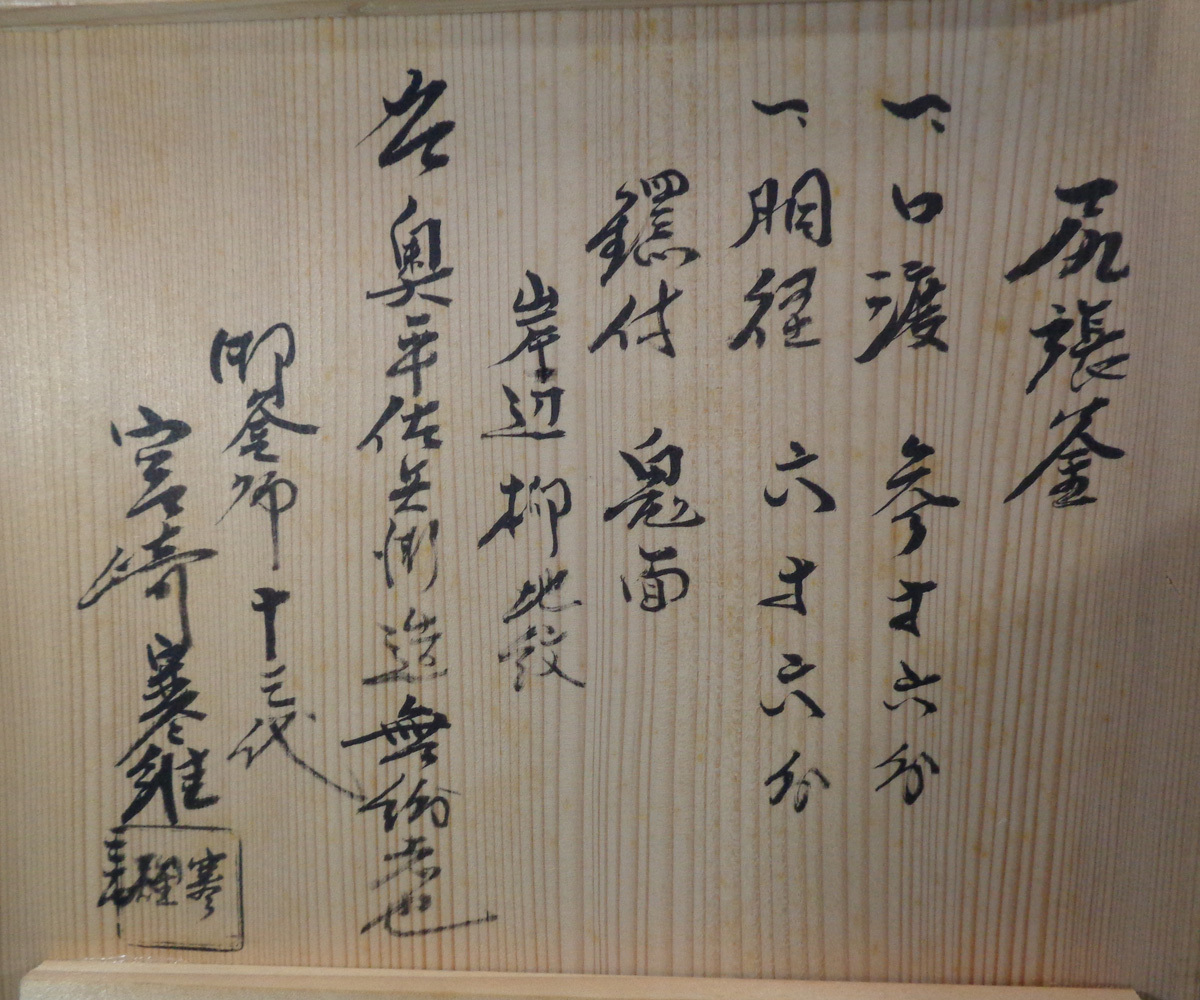 尻張釜
一、口渡 参寸六分
一、胴径 六寸六分
鐶付 鬼面
岸辺柳地紋
右奥平佐兵衛造無紛者也
御釜師十三代
宮崎寒雉
寒雉